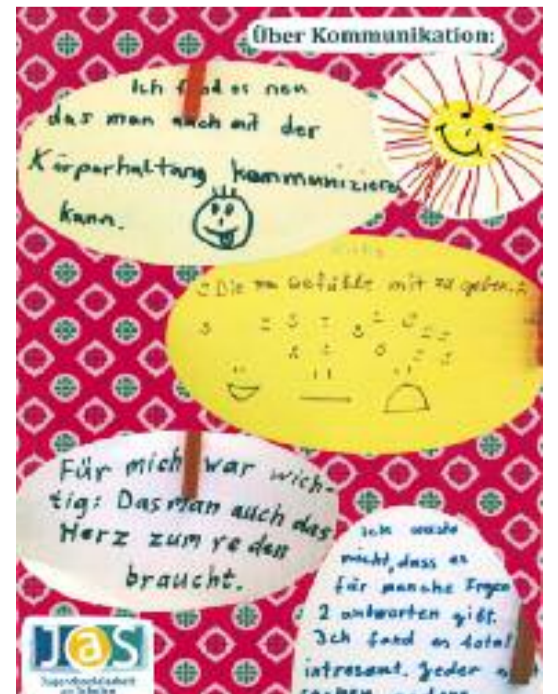 Über Kommunikation:
Ich find es neu
das man auch mit der
Körperhaltung kommunizieren
kann.
Die Gefühle mit zu geben.
Für mich war wich-
tig: Das man auch das
Herz zum reden
braucht.
Ich wusste
nicht, dass es
für manche Fragen
2 antworten gibt.
Ich fand es total
intresant. Jeder
JaS
Jugendsozialarbeit
an Schulen